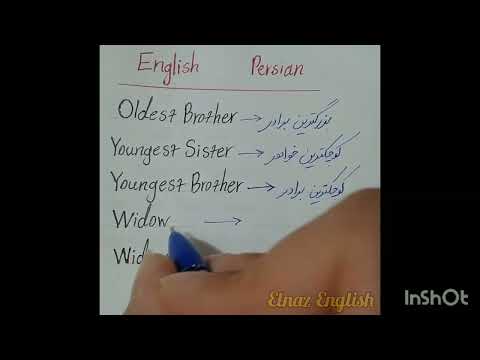 English Persian
Oldest Brother → بزرگترین برادر
Youngest Sister → کوچکترین خواهر
Youngest Brother → کوچکترین برادر
Widow →
Wid
Elnaz English
InShOt